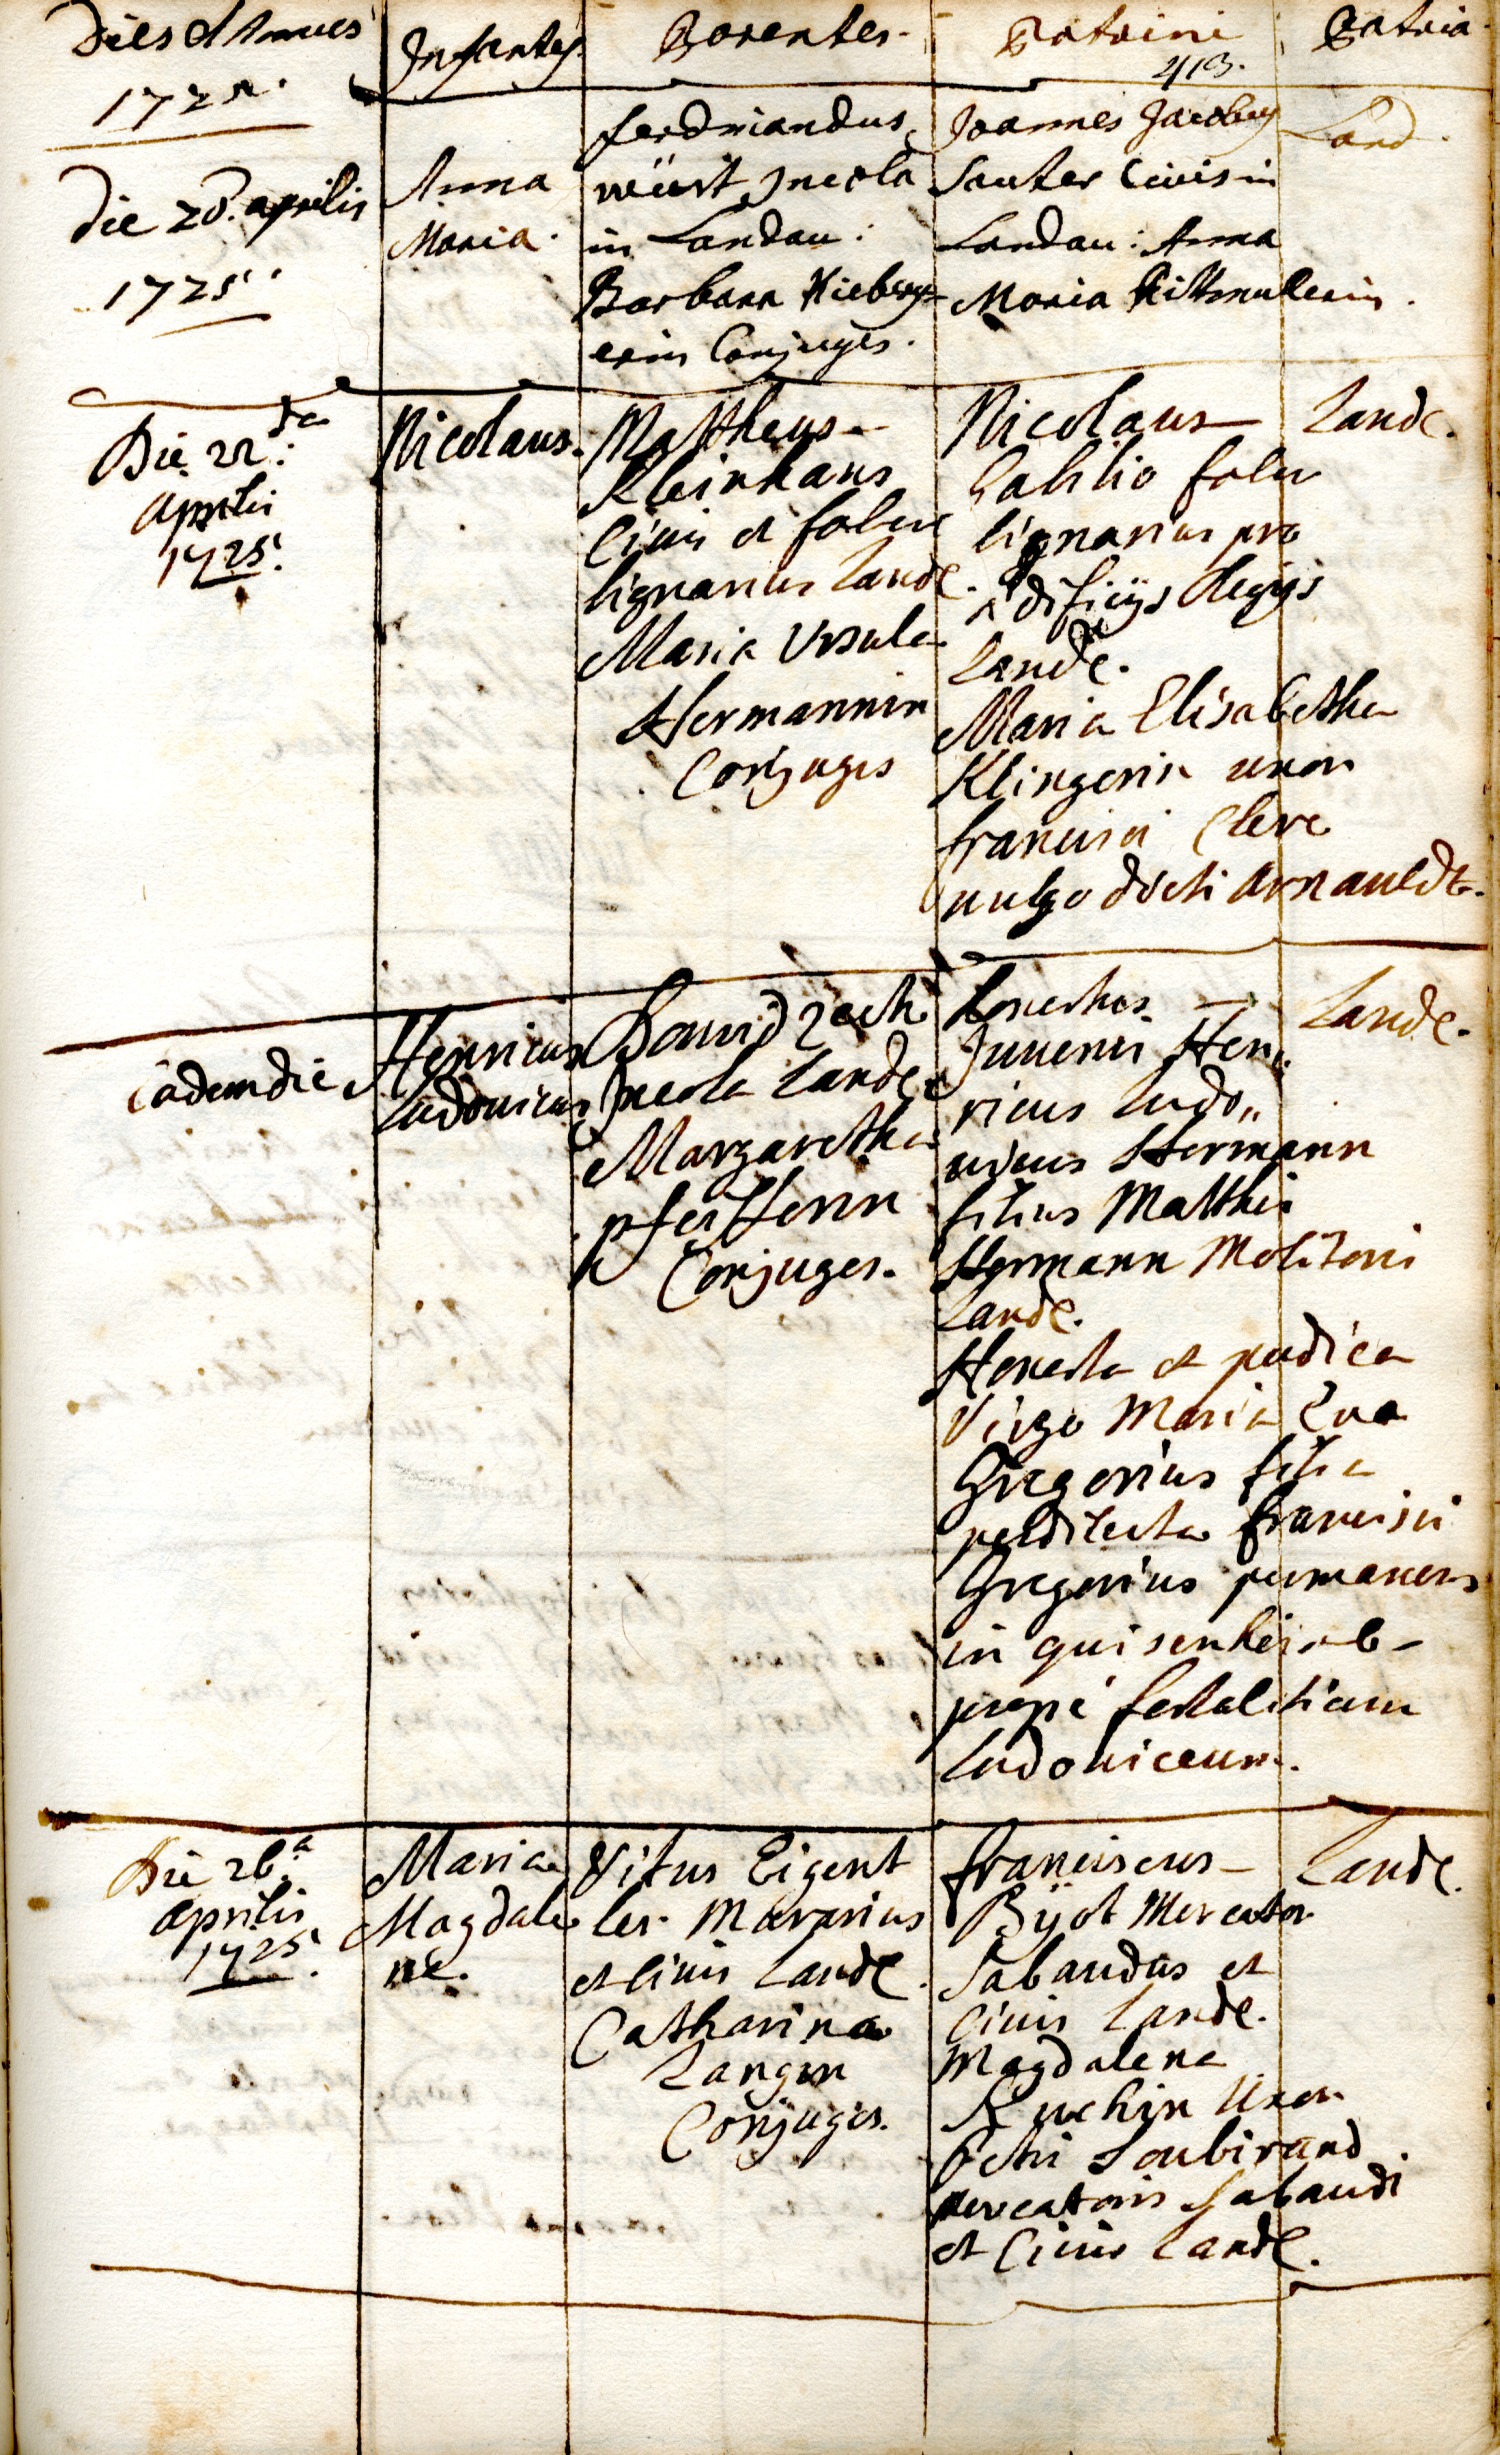 Dies et Annus
Infantes.
Parentes.
Patrini
Patria.
413.
1725.
die 20. aprilis
1725.
Anna
Maria.
Ferdinandus
würt Incola
in Landau:
Barbara
erin Conjuges.
Joannes Jacobus
Sauter Civis in
Landau: Anna
Maria Rittmullerin.
Land.
Die 22da:
Aprilis
1725.
Nicolaus.
Mattheus
Kleinhans
Civis et faber
lignarius Landæ.
Maria Ursula
Hermannin
Conjuges
Nicolaus
faber
lignarius pro
ædificijs Regijs
Landæ.
Maria Elisabetha
Klingerin uxor
francisci Clere
vulgo dicti Arnauldt.
Landæ.
Eadem die
Henricus
Ludovicus
David Zech
Incola Landæ
Margaretha
pfeifferin
Conjuges.
honestus
Juvenis Hen„
ricus Ludo„
vicus Hermann
filius Matthei
Hermann Molitoris
Landæ.
Honesta et pudica
Virgo Maria Eva
Gregorius filia
perdilecta francisci
Gregorius permanens
in
prope fortalitium
Ludoviceum.
Landæ.
Die 26a:
Aprilis
1725.
Maria
Magdale
næ.
Vitus Eigent
ler Murarius
et Civis Landæ.
Catharina
Langin
Conjuges.
franciscus
Bÿot Mercator
Sabaudus et
Civis Landæ.
Magdalena
Kuchin Uxor
Petri Soubirand
mercatoris Sabaudi
et Civis Landæ.
Landæ.